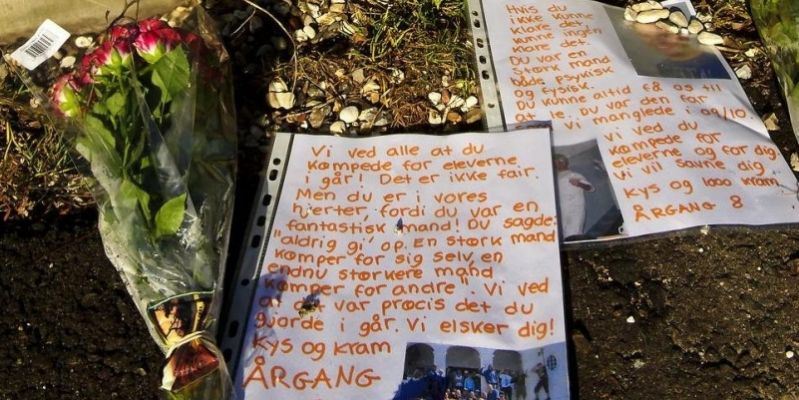 Vi ved alle at du
kæmpede for eleverne
i går! Det er ikke fair.
Men du er i vores
hjerter, fordi du var en
fantastisk mand! Du sagde:
"aldrig gi' op. En stærk mand
kæmper for sig selv, en
endnu stærkere mand
kæmper for andre". Vi ved
at var præcis det du
gjorde i går. Vi elsker dig!
Kys og kram
ÅRGANG
Hvis du
ikke kunne
klare det,
kunne ingen
klare det.
Du var en
stærk mand
både psykisk
og fysisk.
Du kunne altid få os til
at le. Du var den far
vi manglede i
Vi ved du
kæmpede for
eleverne og for dig.
Vi vil savne dig
Kys og 1000 kram
ÅRGANG 8